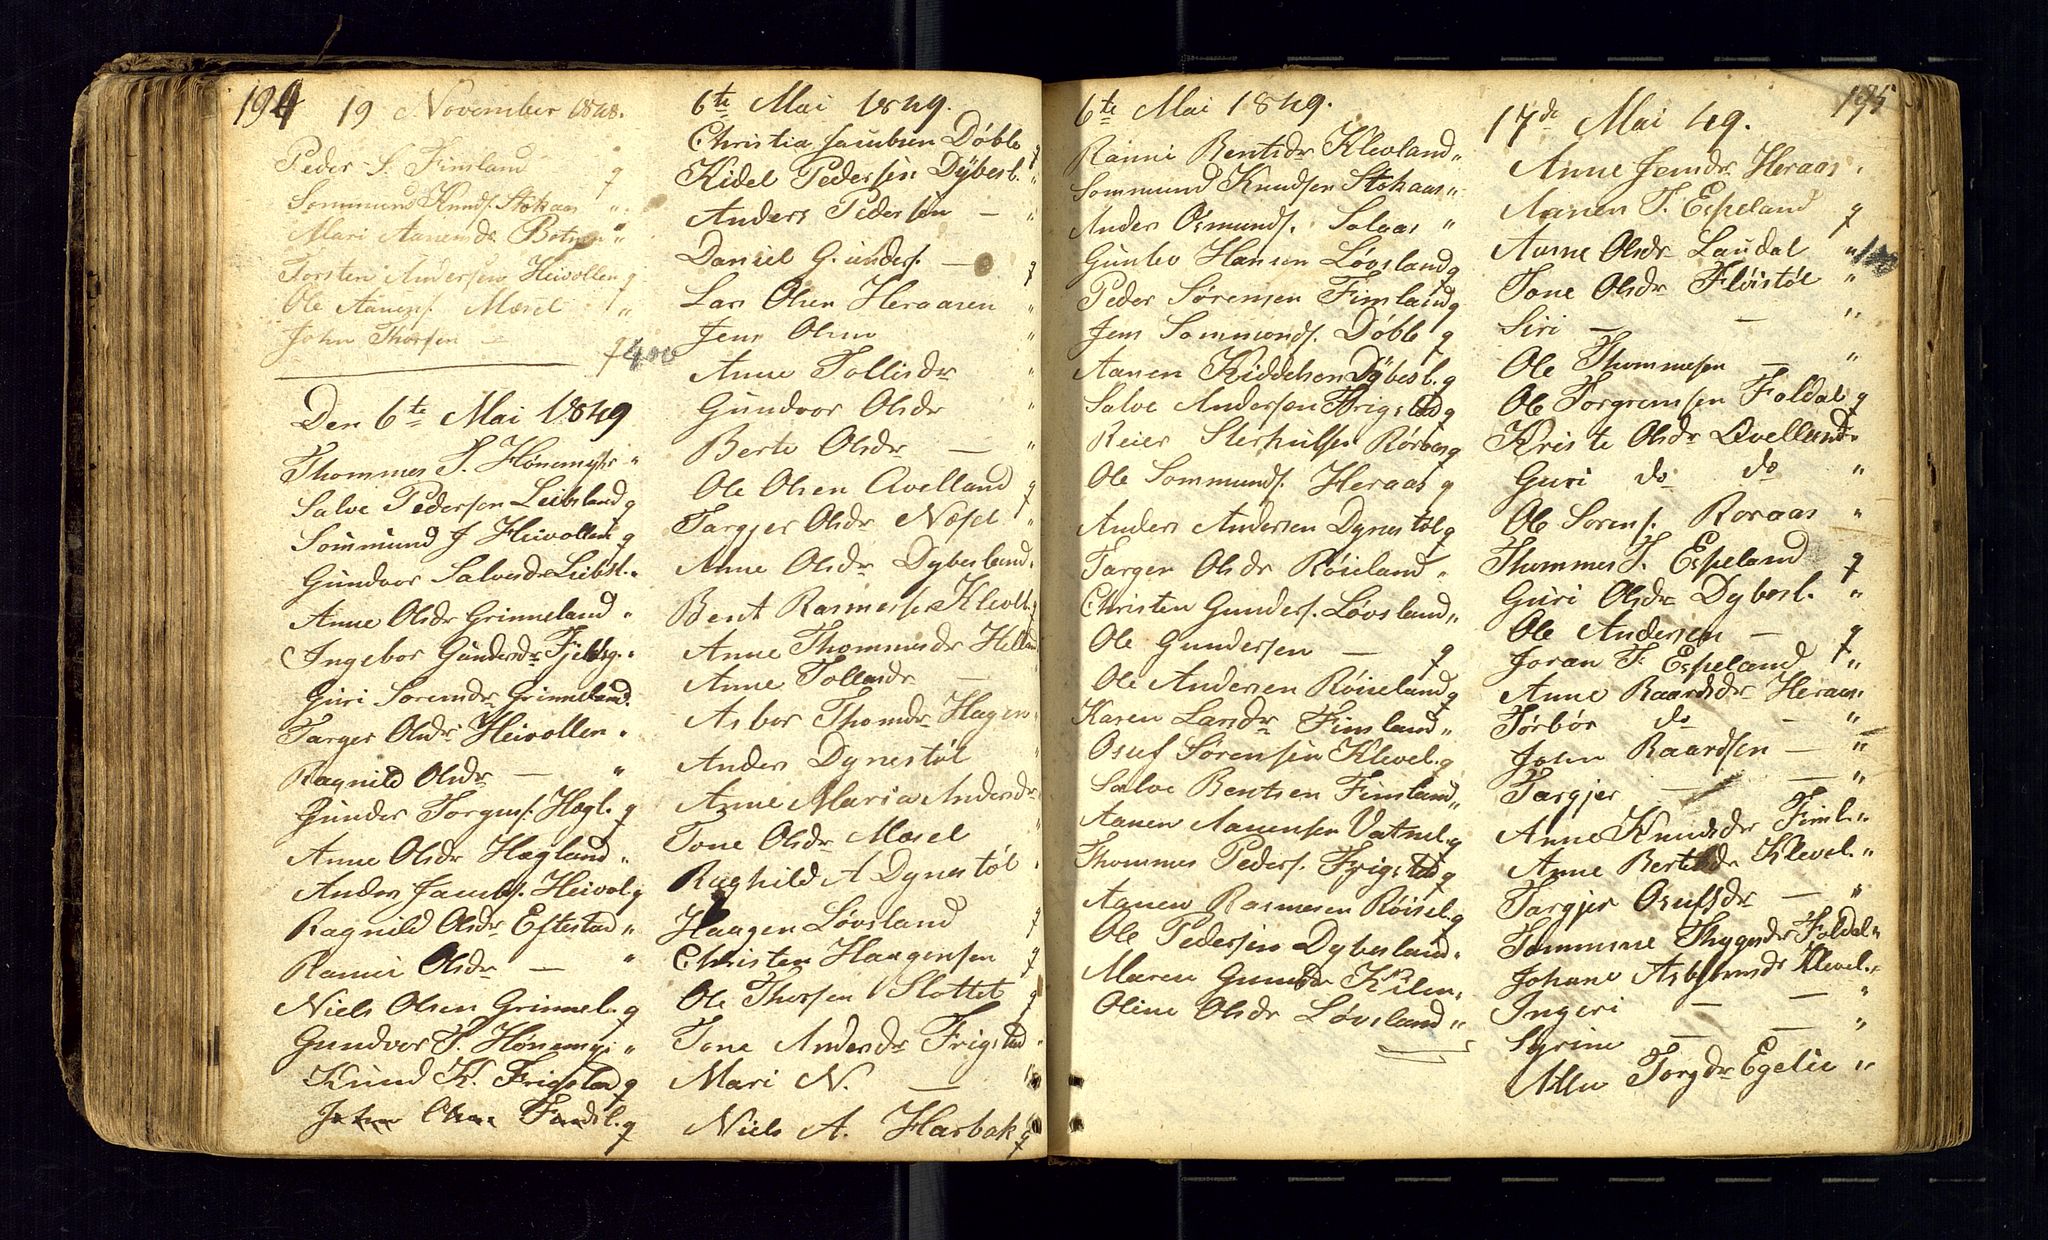 194
19 November 1848.
Peder S. Finsland q
Sommund Knuds. Stokaas "
Mari Aanensdr Botnen "
Torsten Andersen Heivollen q
Ole Aanens. Mæsel "
John Thorsen — q 400
Den 6te Mai 1849
Thommes T. Hønemyhr "
Salve Pedersen Leibsland q
Sommund J Heivollen q
Gundvor Salvesdr Leibsl. "
Anne Olsdr Grinneland "
Ingebor Gundersdr Fjeldsg. "
Guri Sorensdr Grinneland "
Targer Olsdr Heivollen "
Ragnild Olsdr — "
Gunder Torgus. Hægl. q
Anne Olsdr Hægland "
Anders Jacobs. Heivol q
Ragnild Olsdr Eftestad "
Rannei Olsdr — "
Niels Olsen Grinnel. q
Gundvor T. Hønemyr "
Knud K. Frigstad q
John Olsen Findsl. q
6te Mai 1849.
Christia Jacobsen Døble q
Kidel Pedersen Dÿbesl. "
Anders Pedersen — "
Daniel Gunders. — q
Lars Olsen Heraasen "
Jens Olsen "
Anne Tollisdr "
Gundvor Olsdr "
Berte Olsdr — "
Ole Olsen Qvelland q
Targjer Olsdr Næsel "
Anne Olsdr Dybesland "
Bent Rasmusse Klevl. q
Anne Thommesdr Helland
Anne Tollesdr —
Asbor Thomdr Hagen "
Anders Dynestøl "
Anne Maria Andersdr
Tone Olsdr Mæsel "
Raghild A Dynestøl "
Haagen Løvsland q
Christen Haagensen q
Ole Thorsen Slottet q
Tone Andersdr Frigstad "
Mari N. — "
Niels A. Harbak q
6te Mai 1849.
Ranni Bentsdr Klevland "
Sommund Knudsen Stokaas "
Anders Osmunds. Solaas "
Gunlev Hansen Løvsland q
Peder Sørensen Finsland q
Jens Sommonds. Døble q
Aanen Kiddelsen Dÿbesl. q
Salve Andersen Frigstad q
Reier Sterkulsen Røraas q
Ole Sommunds. Heraas q
Anders Andersen Dynestøl q
Targer Olsdr Røiseland "
Christen Gunders. Løvsland "
Ole Gundersen — q
Ole Andersen Røiseland q
Karen Larsdr Finsland "
Osuf Sørensen Klevel. q
Salve Bentsen Finsland "
Aanen Aanensen Vatnel. q
Thommes Peders. Frigstad q
Aanen Rasmusen Røisel. q
Ole Pedersen Dybesland "
Maren Gundsdr Kilen "
Oline Olsdr Løvsland "
195
17de Mai 49.
Anne Jensdr Heraas "
Aanen T. Espeland q
Aasne Olsdr Laudal "
Tone Olsdr Fløistøl "
Siri — — "
Ole Thommesen — "
Ole Torgremsen Foldal q
Kriste Olsdr Qvelland "
Guri do do "
Ole Sorens. Roraas "
Thommes T. Espeland q
Guri Olsdr Dybesl. "
Ole Andersen — q
Joran T. Espeland "
Anne Baardsdr Heraas "
Tørbør do — "
John Baardsen — "
Targjer — — "
Anne Knudsdr Finsl. "
Anne Bertesdr Klevel. "
Targjer Osufsdr — "
Tommine Thygesdr Foldal "
Johane Asbjørnsdr Klevel. "
Ingeri — — "
Syrine — — "
Atlu Torgdr Egelie "